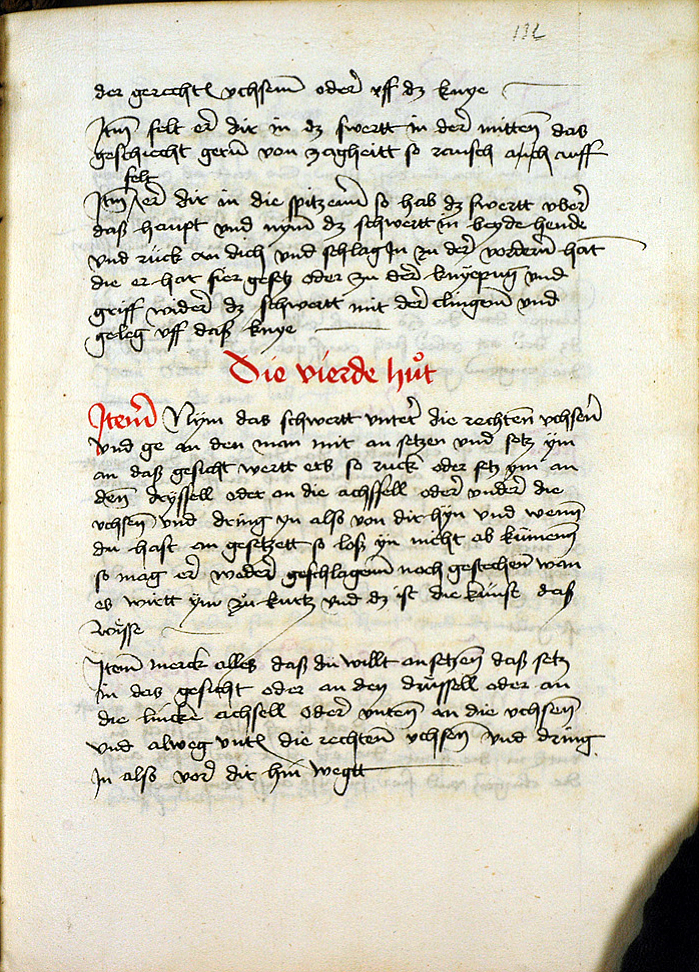 112
der gerechtn uchsenn oder uff dz knye
Itm felt er dir in dz swertt in der mitten das
geschiecht gern von zagheitt so rausch auch auff
felt
Itm er dir in die spitzenn so hab dz swertt uber
daß haupt und nymm dz schwertt in beyde hende
und rück an dich und schlag In zu der vordernn hat
die er hat fier gesetz oder zu der knyepug und
griff wider dz schwertt mit der clingenn und
geleg uff daß knye
Die vierde hůt
Itenn Nym das schwertt unter die rechten uchsen
und ge an den man mit an setzen und setz ym
an daß gesicht wertt ers so ruck oder setz ym an
den drÿssell oder an die achssell oder under die
uchsen und dring yn also von dir hyn und wenn
du hast an gesetzett so loß yn nicht ab kümenn
so mag er weder geschlagenn noch gestechen wan
es wirtt ÿm zu kurtz und dz ist die künst daß
wÿsse
Item merck alles daß du willt ansetzen daß setz
in das gesicht oder an den drüssell oder an
die lincke achsell oder unten an die uchsen
und alweg unt die rechtenn uchsen und dring
In also vor dir hin wegtt